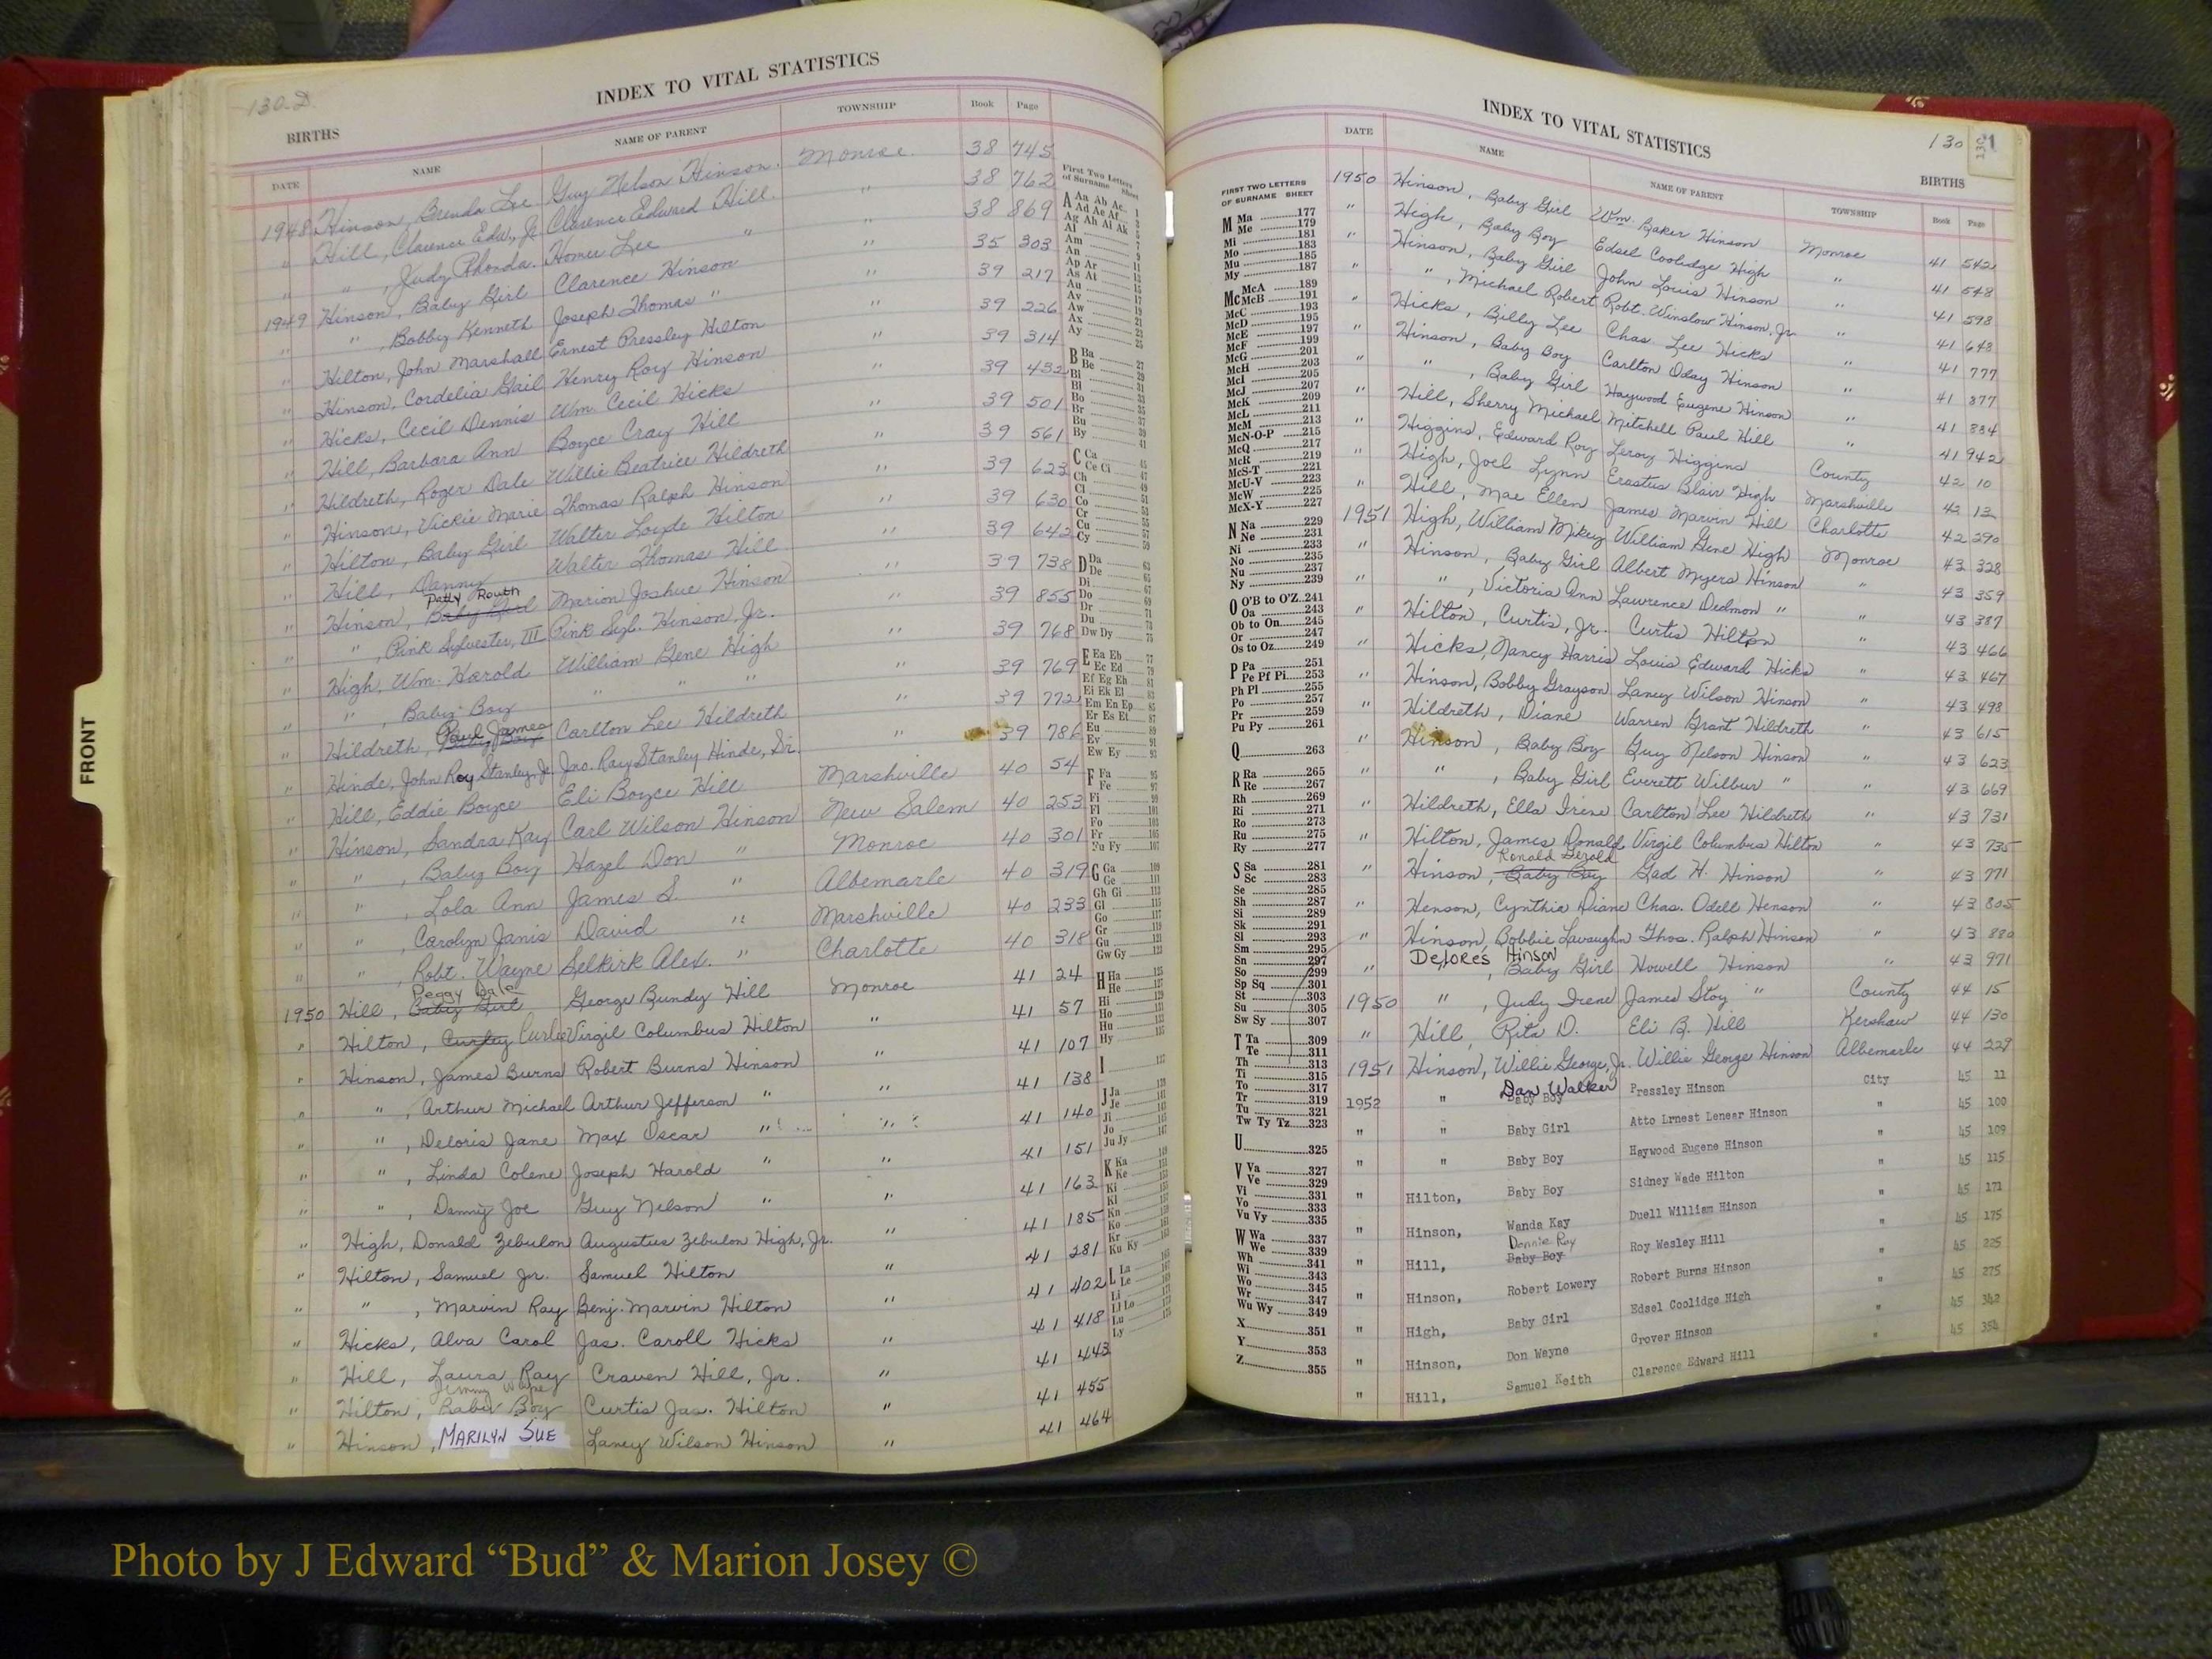 130-D.
INDEX TO VITAL STATISTICS
BIRTHS
DATE NAME NAME OF PARENT TOWNSHIP Book Page
1948 Hinson, Brenda Lee Guy Nelson Hinson. Monroe. 38 745
" Hill, Clarence Edw., Jr Clarence Edward Hill. " 38 762
" " , Judy Rhonda. Homer Lee " " 38 869
1949 Hinson, Baby Girl Clarence Hinson " 35 303
" " , Bobby Kenneth Joseph Thomas " " 39 217
" Hilton, John Marshall Ernest Pressley Hilton " 39 226
" Hinson, Cordelia Gail Henry Roy Hinson " 39 314
" Hicks, Cecil Dennis Wm. Cecil Hicks " 39 432
" Hill, Barbara Ann Boyce Cray Hill " 39 501
" Hildreth, Roger Dale Willie Beatrice Hildreth " 39 561
" Hinson, Vickie Marie Thomas Ralph Hinson " 39 623
" Hilton, Baby Girl Walter Loyde Hilton " 39 630
" Hill, Danny Walter Thomas Hill " 39 642
" Hinson, Baby Girl Patty Routh Marion Joshue Hinson " 39 738
" " , Pink Sylvester, III Pink Syl. Hinson, Jr. " 39 855
" High, Wm. Harold William Gene High " 39 768
" " , Baby Boy " " " " 39 769
" Hildreth, Baby Boy Paul James Carlton Lee Hildreth " 39 772
" Hinde, John Roy Stanley, Jr Jno. Ray Stanley Hinde, Sr. " 39 786
" Hill, Eddie Boyce Eli Boyce Hill Marshville 40 54
" Hinson, Sandra Kay Carl Wilson Hinson New Salem 40 253
" " , Baby Boy Hazel Don " Monroe 40 301
" " , Lola Ann James S. " Albemarle 40 319
" " , Carolyn Janis David " Marshville 40 233
" " , Robt. Wayne Selkirk Alex. " Charlotte 40 318
1950 Hill, Baby Girl Peggy Dale George Bundy Hill Monroe 41 24
" Hilton, Curley Curlee Virgil Columbus Hilton " 41 57
" Hinson, James Burns Robert Burns Hinson " 41 107
" " , Arthur Michael Arthur Jefferson " " 41 138
" " , Deloris Jane Max Oscar " " 41 140
" " , Linda Colene Joseph Harold " " 41 151
" " , Danny Joe Guy Nelson " " 41 163
" High, Donald Zebulon Augustus Zebulon High, Jr. " 41 185
" Hilton, Samuel Jr. Samuel Hilton " 41 281
" " , Marvin Ray Benj. Marvin Hilton " 41 402
" Hicks, Alva Carol Jas. Caroll Hicks " 41 418
" Hill, Laura Ray Craven Hill, Jr. " 41 443
" Hilton, Baby Boy Jimmy Curtis Jas. Hilton " 41 455
" Hinson, MARILYN SUE Laney Wilson Hinson " 41 464
First Two Letters of Surname Sheet
A Aa Ab Ac 1
Ad Ae Af 3
Ag Ah Ai Ak 5
Al 7
Am 9
An 11
Ap Ar 13
As At 15
Au 17
Av 19
Aw 21
Ax 23
Ay 25
B Ba 27
Be 29
Bi 31
Bl 33
Bo 35
Br 37
Bu 39
By 41
C Ca 45
Ce Ci 47
Ch 49
Cl 51
Co 53
Cr 55
Cu 57
Cy 59
D Da 63
De 65
Di 67
Do 69
Dr 71
Du 73
Dw Dy 75
E Ea Eb 77
Ec Ed 79
Ef Eg Eh 81
Ei Ek El 83
Em En Ep 85
Er Es Et 87
Eu 89
Ev 91
Ew Ey 93
F Fa 95
Fe 97
Fi 99
Fl 101
Fo 103
Fr 105
Fu Fy 107
G Ga 109
Ge 111
Gh Gi 113
Gl 115
Go 117
Gr 119
Gu 121
Gw Gy 123
H Ha 125
He 127
Hi 129
Ho 131
Hu 133
Hy 135
I 137
J Ja
Je
Ji
Jo
Ju Jy
K Ka
Ke
Ki
Kl
Kn
Ko
Kr
Ku Ky
L La
Le
Li
Ll Lo
Lu
Ly
FRONT
130
INDEX TO VITAL STATISTICS
BIRTHS
DATE NAME NAME OF PARENT TOWNSHIP Book Page
1950 Hinson, Baby Girl Wm. Baker Hinson Monroe 41 542
" High, Baby Boy Edsel Coolidge High " 41 548
" Hinson, Baby Girl John Louis Hinson " 41 598
" " , Michael Robert Robt. Winslow Hinson, Jr. " 41 648
" Hicks, Billy Lee Chas. Lee Hicks " 41 777
" Hinson, Baby Boy Carlton Oday Hinson " 41 877
" " , Baby Girl Haywood Eugene Hinson " 41 884
" Hill, Sherry Michael Mitchell Paul Hill " 41 942
" Higgins, Edward Roy Leroy Higgins County 42 10
" High, Joel Lynn Erastus Blair High Marshville 42 12
" Hill, Mae Ellen James Marvin Hill Charlotte 42 290
1951 High, William Mikey William Gene High Monroe 43 328
" Hinson, Baby Girl Albert Myers Hinson " 43 359
" " , Victoria Ann Lawrence Dedmon " " 43 387
" Hilton, Curtis, Jr. Curtis Hilton " 43 466
" Hicks, Nancy Harris Louis Edward Hicks " 43 467
" Hinson, Bobby Grayson Laney Wilson Hinson " 43 498
" Hildreth, Diane Warren Grant Hildreth " 43 615
" Hinson, Baby Boy Guy Nelson Hinson " 43 623
" " , Baby Girl Everett Wilbur " " 43 669
" Hildreth, Ella Irene Carlton Lee Hildreth " 43 731
" Hilton, James Donald Virgil Columbus Hilton " 43 735
" Hinson, Baby Boy Ronald Gerold Gad H. Hinson " 43 771
" Henson, Cynthia Diane Chas. Odell Henson " 43 805
" Hinson, Bobbie Lavaughn Thos. Ralph Hinson " 43 880
" " , Baby Girl Delores Hinson Howell Hinson " 43 971
1950 " , Judy Irene James Stoy " County 44 15
" Hill, Rita D. Eli B. Hill Kershaw 44 130
1951 Hinson, Willie George, Jr. Willie George Hinson Albemarle 44 229
1952 " Baby Boy Dan Walker Pressley Hinson City 45 11
" " Baby Girl Atto Lrnest Lenear Hinson " 45 100
" " Baby Boy Haywood Eugene Hinson " 45 109
" Hilton, Baby Boy Sidney Wade Hilton " 45 115
" Hinson, Wanda Kay Duell William Hinson " 45 171
" Hill, Baby Boy Donnie Roy Roy Wesley Hill " 45 175
" Hinson, Robert Lowery Robert Burns Hinson " 45 225
" High, Baby Girl Edsel Coolidge High " 45 275
" Hinson, Don Wayne Grover Hinson " 45 342
" Hill, Samuel Keith Clarence Edward Hill " 45 354
FIRST TWO LETTERS OF SURNAME SHEET
M Ma 177
Me 179
Mi 181
Mo 183
Mu 185
My 187
Mc McA 189
McB 191
McC 193
McD 195
McE 197
McF 199
McG 201
McH 203
McI 205
McJ 207
McK 209
McL 211
McM 213
McN-O-P 215
McQ 217
McR 219
McS-T 221
McU-V 223
McW 225
McX-Y 227
N Na 229
Ne 231
Ni 233
No 235
Nu 237
Ny 239
O O'B to O'Z 241
Oa 243
Ob to On 245
Or 247
Os to Oz 249
P Pa 251
Pe Pf Pi 253
Ph Pl 255
Po 257
Pr 259
Pu Py 261
Q 263
R Ra 265
Re 267
Rh 269
Ri 271
Ro 273
Ru 275
Ry 277
S Sa 281
Sc 283
Se 285
Sh 287
Si 289
Sk 291
Sl 293
Sm 295
Sn 297
So 299
Sp Sq 301
St 303
Su 305
Sw Sy 307
T Ta 309
Te 311
Th 313
Ti 315
To 317
Tr 319
Tu 321
Tw Ty Tz 323
U 325
V Va 327
Ve 329
Vi 331
Vo 333
Vu Vy 335
W Wa 337
We 339
Wh 341
Wi 343
Wo 345
Wr 347
Wu Wy 349
X 351
Y 353
Z 355
Photo by J Edward “Bud” & Marion Josey ©